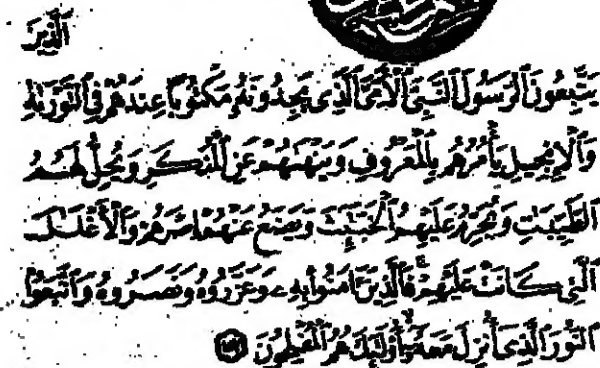 ٱلَّذِينَ
يَتَّبِعُونَ ٱلرَّسُولَ ٱلنَّبِيَّ ٱلْأُمِّيَّ ٱلَّذِى يَجِدُونَهُۥ مَكْتُوبًا عِندَهُمْ فِى ٱلتَّوْرَىٰةِ
وَٱلْإِنجِيلِ يَأْمُرُهُم بِٱلْمَعْرُوفِ وَيَنْهَىٰهُمْ عَنِ ٱلْمُنكَرِ وَيُحِلُّ لَهُمُ
ٱلطَّيِّبَـٰتِ وَيُحَرِّمُ عَلَيْهِمُ ٱلْخَبَـٰٓئِثَ وَيَضَعُ عَنْهُمْ إِصْرَهُمْ وَٱلْأَغْلَـٰلَ
ٱلَّتِى كَانَتْ عَلَيْهِمْ فَٱلَّذِينَ ءَامَنُوا۟ بِهِۦ وَعَزَّرُوهُ وَنَصَرُوهُ وَٱتَّبَعُوا۟
ٱلنُّورَ ٱلَّذِىٓ أُنزِلَ مَعَهُۥٓ أُو۟لَـٰٓئِكَ هُمُ ٱلْمُفْلِحُونَ